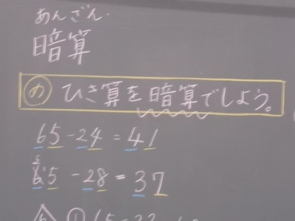 あんざん
暗算
め ひき算を暗算でしよう。
65-24=41
5
65-28=37
① 65-23